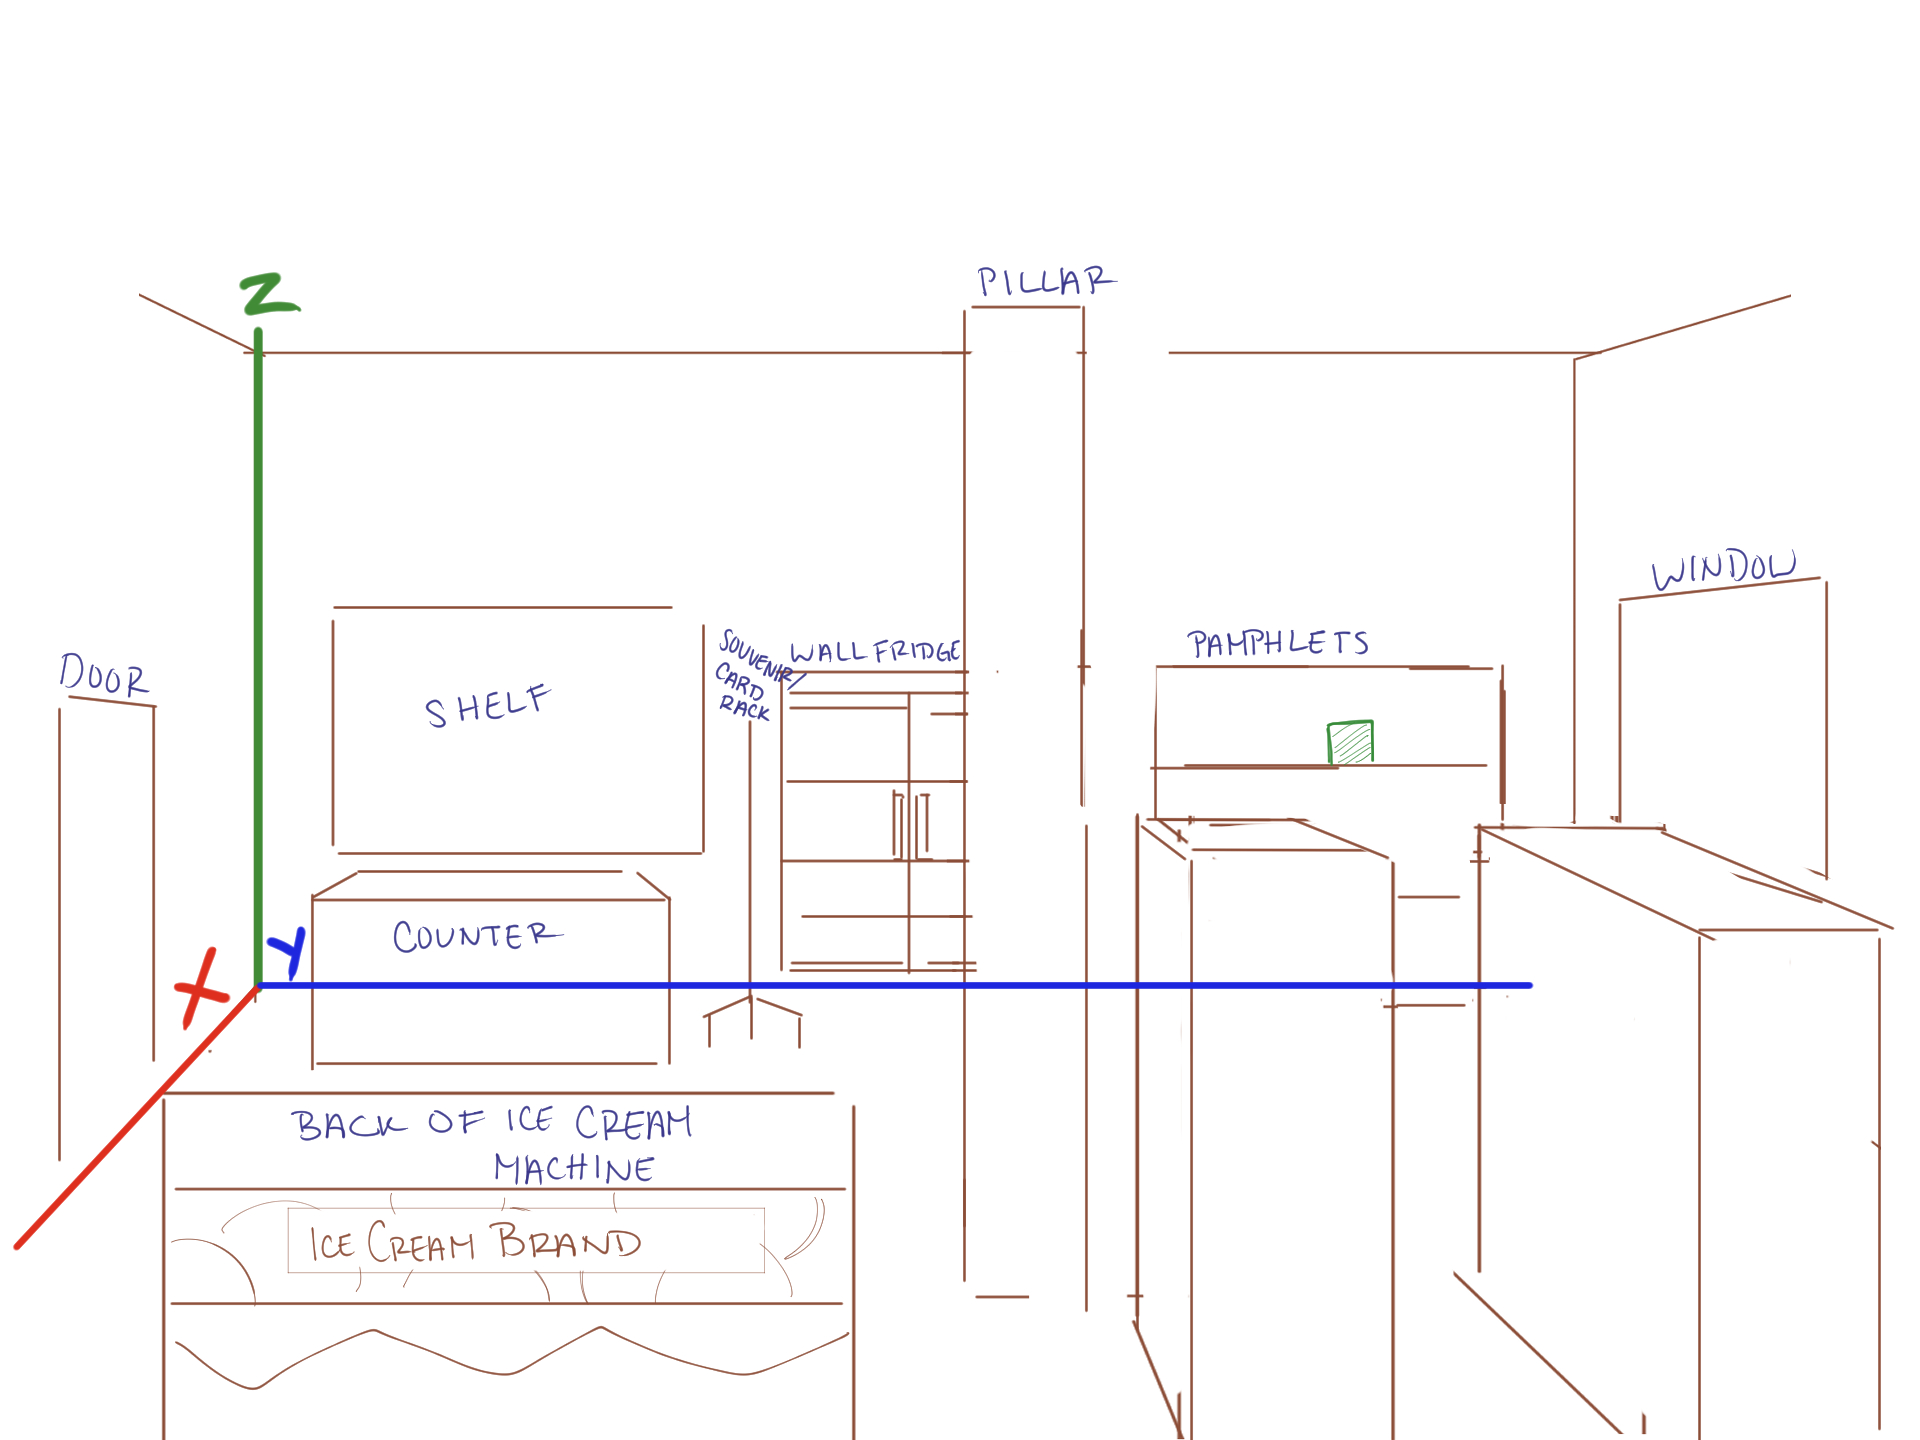 Z
PILLAR
WINDOW
SOUVENIR/
CARD
RACK
WALL FRIDGE
PAMPHLETS
DOOR
SHELF
COUNTER
Y
X
BACK OF ICE CREAM
MACHINE
ICE CREAM BRAND